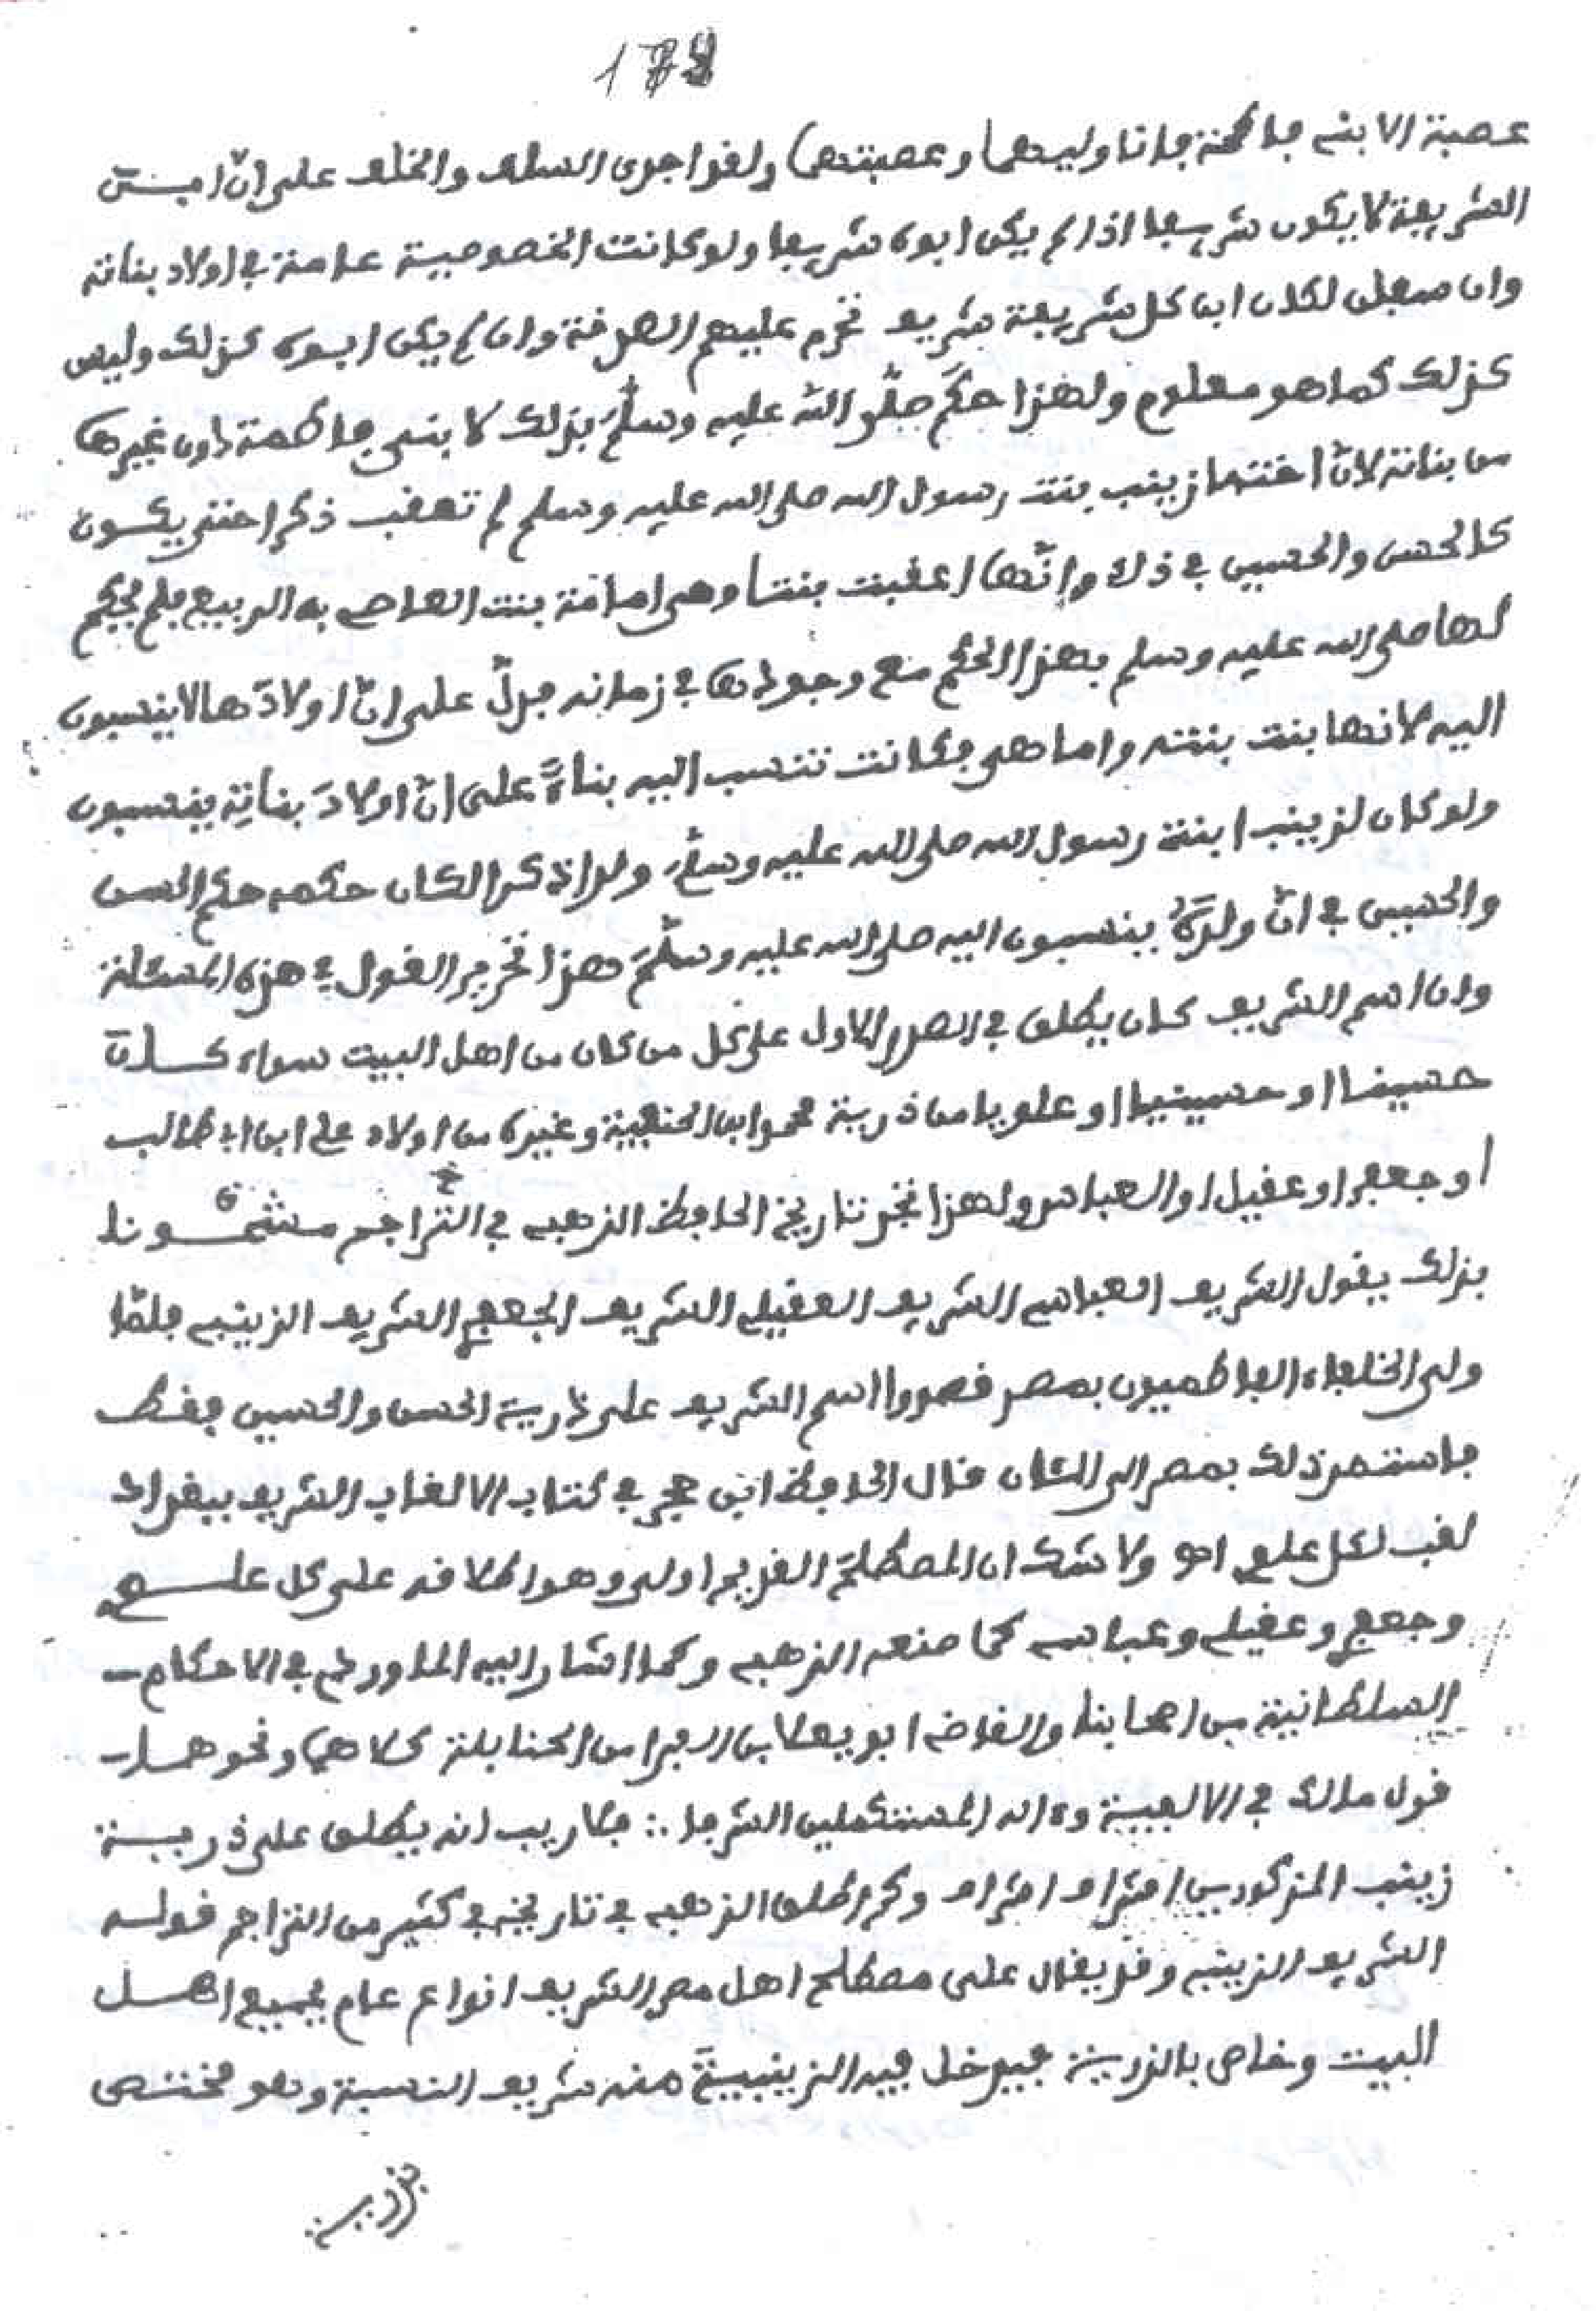 178
عصبة الا ابني فاطمة فانا وليهما وعصبتهما) ولهذا جرى السلف والخلف على ان ابن
الشريفة لا يكون شريفا اذا لم يكن ابوه شريفا ولو كانت الخصوصية عامة في اولاد بناته
وان سفلن لكان ابن كل شريفة شريف تحرم عليهم الصدقة وان لم يكن ابوه كذلك وليس
كذلك كما هو معلوم ولهذا حكم صلى الله عليه وسلم بذلك لابني فاطمة دون غيرها
من بناته لان اختها زينب بنت رسول الله صلى الله عليه وسلم لم تعقب ذكرا حتى يكون
كالحسن والحسين في ذلك وإنّها اعقبت بنتا وهي امامة بنت العاص به الربيع فلم يحكم
لها صلى الله عليه وسلم بهذا الحكم مع وجودها في زمانه فدلّ على انّ اولادها لا ينسبون
اليه لانها بنت بنته واما هي فكانت تنسب اليه بناءً على انّ اولادَ بناتِه ينسبون
ولو كان لزينب ابنة رسول الله صلى الله عليه وسلم ولدا ذكرا لكان حكمه حكم الحسن
والحسين في انّ ولدَهُ ينسبون اليه صلى الله عليه وسلّمَ هذا تحرير القول في هذه المسئلة
وان اسم الشريف كان يطلق في الصدر الاول على كل من كان من اهل البيت سواء كان
حسينا او حسينيا او علويا من ذرية محمد ابن الحنفية وغيره من اولاد علي ابن ابي طالب
او جعفر او عقيل او العباس ولهذا نجد تاريخ الحافظ الذهبي في التراجم مشحونا
بذلك يقول الشريف العباسي الشريف العقيلي الشريف الجعفري الشريف الزينبي فلمّا
ولى الخلفاء الفاطميون بمصر قصروا اسم الشريف على ذرية الحسن والحسين فقط
فاستمر ذلك بمصر الى الان قال الحافظ ابن حجر في كتاب الالقاب الشريف ببغداد
لقب لكل علوي اهو ولا شك ان المصطلح القديم اولى وهو اطلاقه على كل علوي
وجعفري وعقيلي وعباسي كما صنعه الذهبي وكما اشار اليه الماوردي في الاحكام
السلطانية من اصحابنا والقاضي ابو يعلا بن الفرا من الحنابلة كلاهما ونحو هما
قول مالك في الالفية وءاله المستكملين الشرفا ∴ فلا ريب انه يطلق على ذرية
زينب المذكورين اشراف اشراف وكم اطلق الذهبي في تاريخه في كثير من التراجم قوله
الشريف الزينبي وقد يقال على مصطلح اهل مصر الشريف انواع عام لجميع اهل
البيت وخاص بالذرية فيدخل فيه الزينبية منه شريف النسبة وهو مختص
بذرية